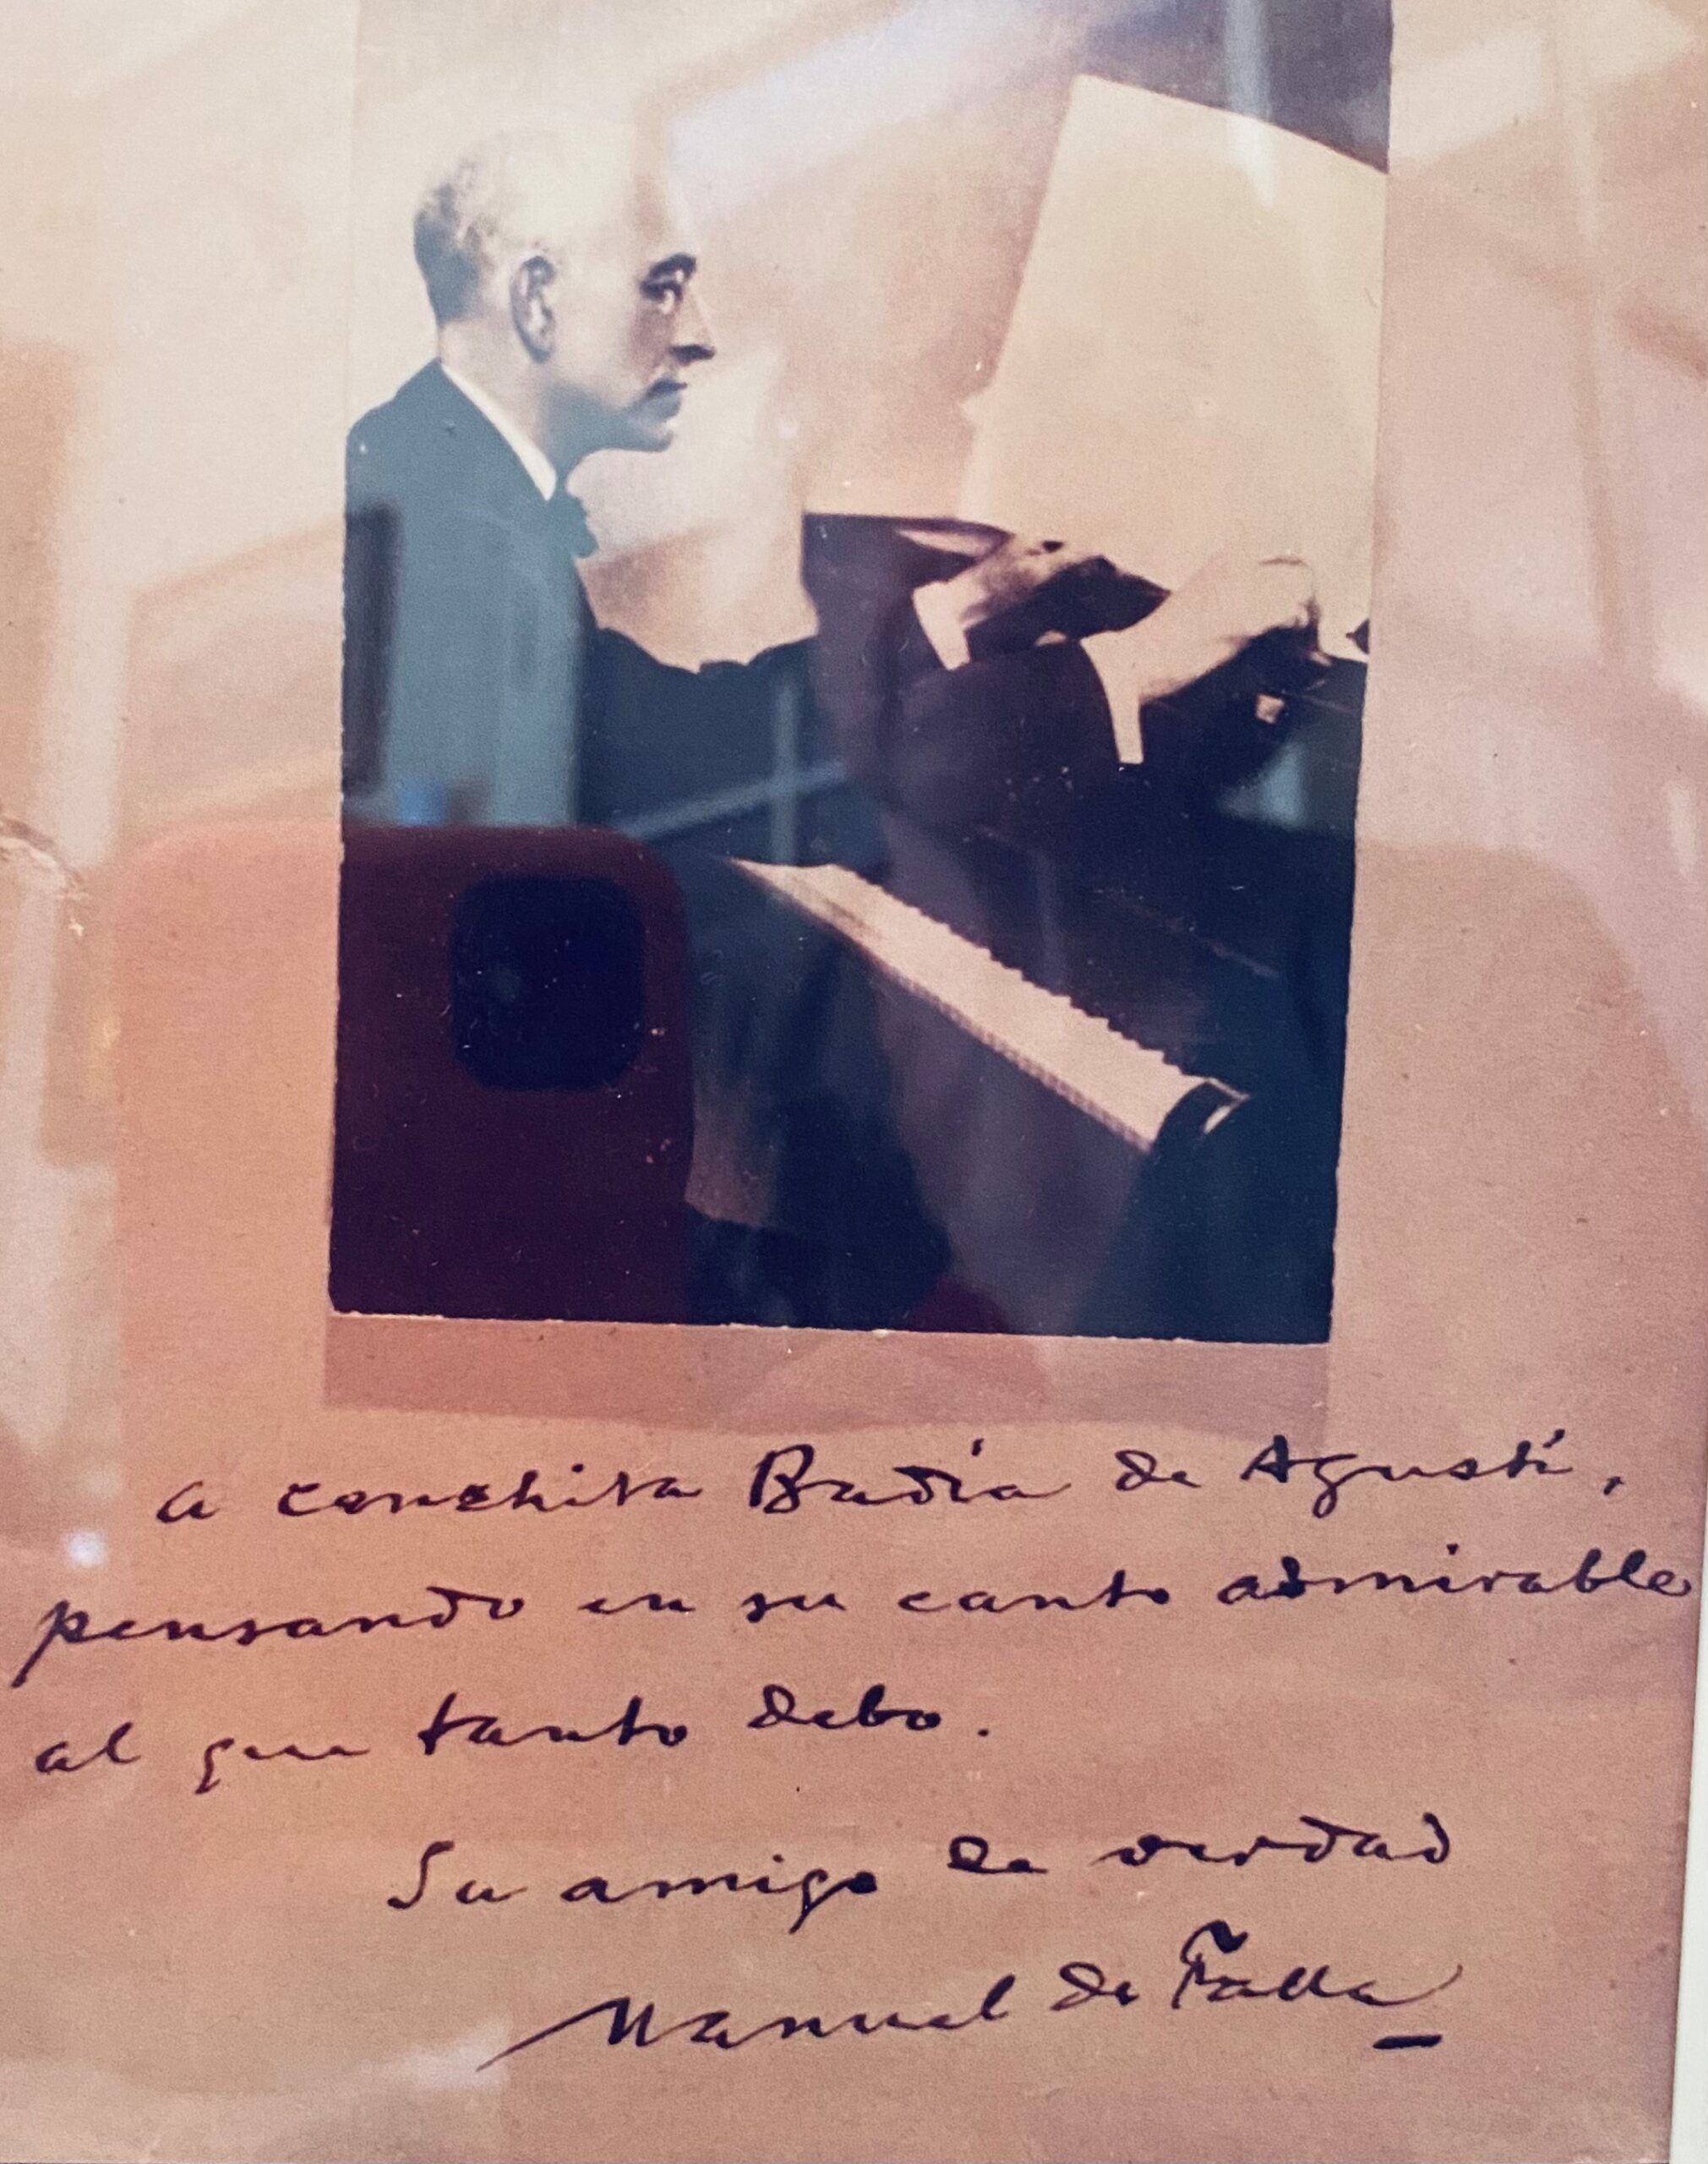 a conchita Badía de Agustí,
pensando en su canto admirable
al que tanto debo.
Su amigo de verdad
Manuel de Falla